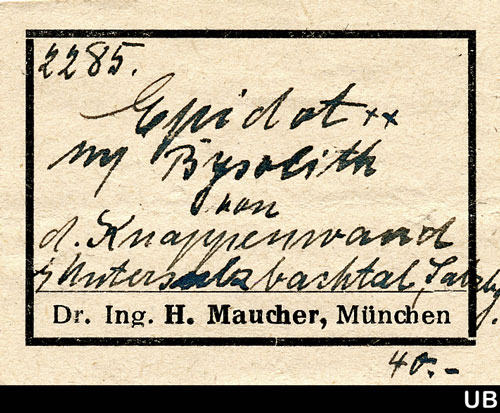 2285.
Epidot xx
m Bysolith
von
d. Knappenwand
Untersulzbachtal, Salzbg.
Dr. Ing. H. Maucher, München
40.-
UB